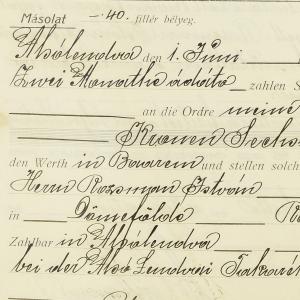 Másolat —.40. fillér bélyeg.
Alsólendva den 1. Juni
Zwei Monathe a dáto zahlen S
an die Ordre meine
Kronen Sechs
den Werth in Baarem und stellen solch
Herrn Rozsman Istvan
in Dömeföldo
Zahlbar in Alsólendva
bei der Alsó Lendvai Takaré